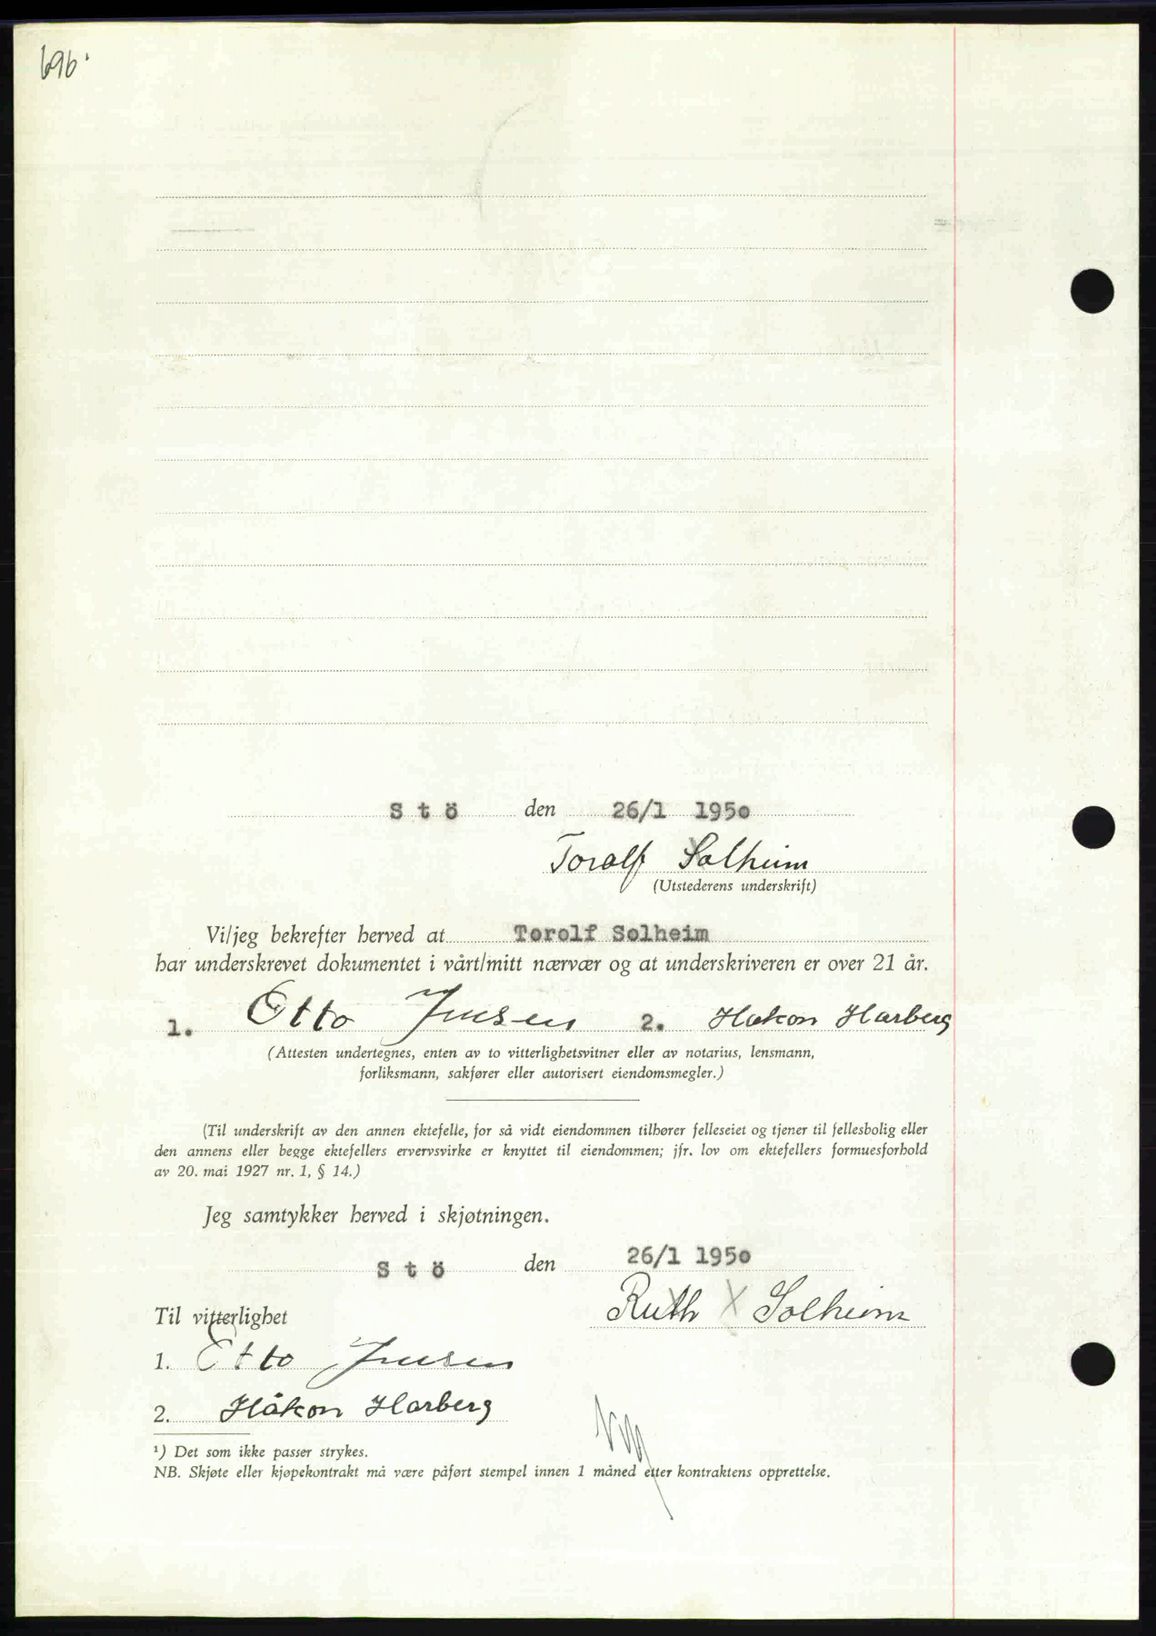 696
S t ö den 26/1 1950
Toralf Solheim
(Utstederens underskrift)
Vi/jeg bekrefter herved at Torolf Solheim
har underskrevet dokumentet i vårt/mitt nærvær og at underskriveren er over 21 år.
1. Otto Jensen 2. Håkon Harberg
(Attesten undertegnes, enten av to vitterlighetsvitner eller av notarius, lensmann,
forliksmann, sakfører eller autorisert eiendomsmegler.)
(Til underskrift av den annen ektefelle, for så vidt eiendommen tilhører felleseiet og tjener til fellesbolig eller
den annens eller begge ektefellers ervervsvirke er knyttet til eiendommen; jfr. lov om ektefellers formuesforhold
av 20. mai 1927 nr. 1, § 14.)
Jeg samtykker herved i skjøtningen.
S t ö den 26/1 1950
Til vitterlighet Ruth Solheim
1. Otto Jensen
2. Håkon Harberg
¹) Det som ikke passer strykes.
NB. Skjøte eller kjøpekontrakt må være påført stempel innen 1 måned etter kontraktens opprettelse.